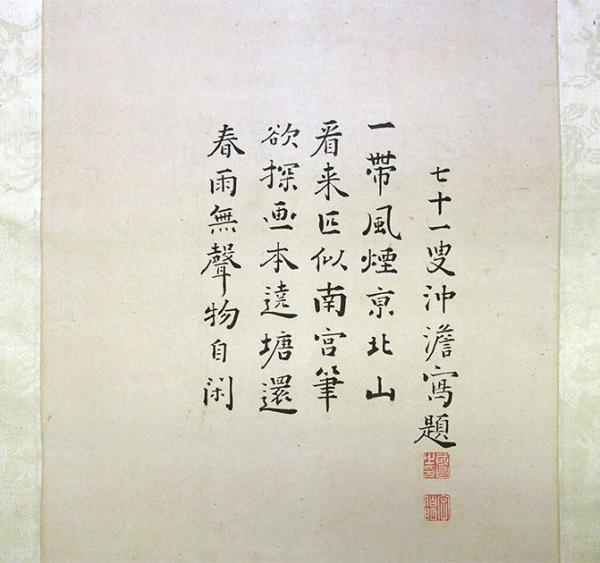 春雨無聲物自閑
欲探画本遶塘還
看来匹似南宮筆
一帶風煙亰北山
七十一叟沖澹寫題